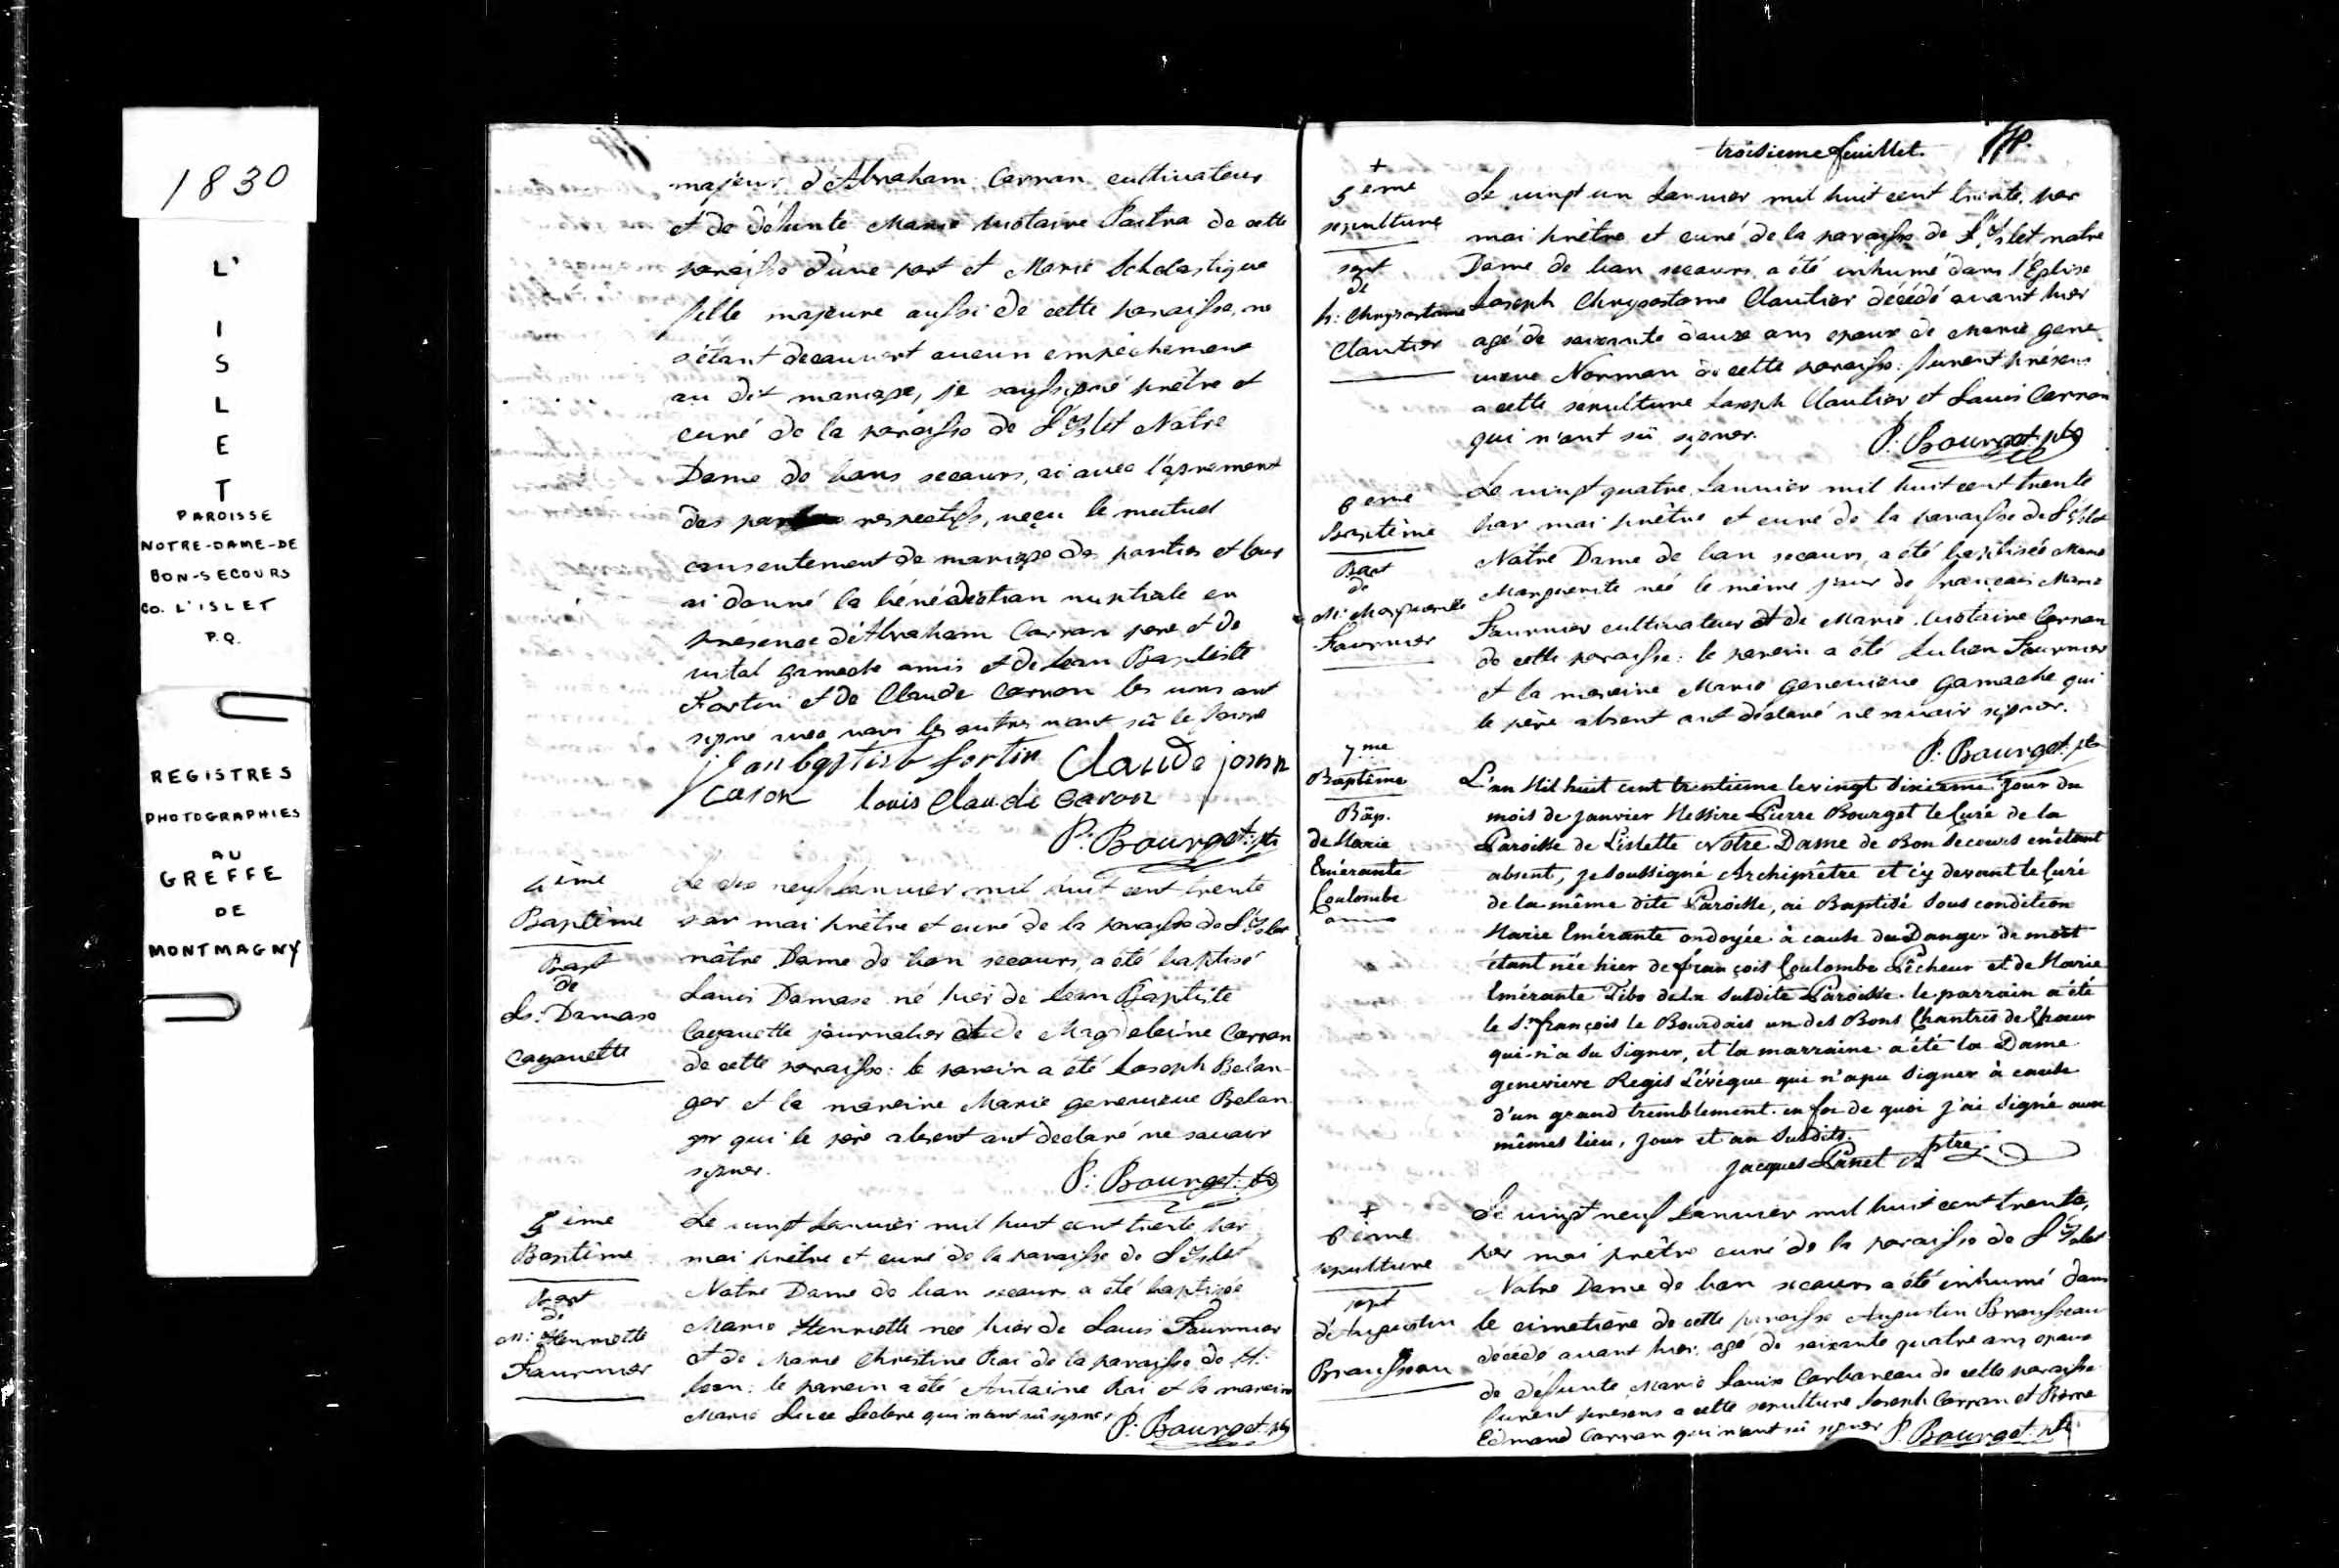 1830
L'
I
S
L
E
T
PAROISSE
NOTRE-DAME-DE
BON-SECOURS
Co. L'ISLET
P.Q.
REGISTRES
PHOTOGRAPHIES
AU
GREFFE
DE
MONTMAGNY
majeur d'Abraham Carran cultivateur
et de défunte Marie de cette
paraisse d'une part et Marie Scholastique
fille majeure aussi de cette paraisse, ne
s'étant decauvert aucun empêchement
au dit mariage, je saussigné prêtre et
curé de la paraisse de L'Islet Natre
Dame de bans secaurs, ai avec l'agrement
des respectifs, reçu le mutuel
cansentement de mariage des parties et leur
ai danné la bénédictian nuptiale en
présence d'Abraham Carran pere et de
vital gamache amis et de Jean Baptiste
Fortin et de Claude Carran les uns ant
signé avec naus les autres n'ant sû le faire
jean baptist fortin Claude
caron louis Claude Caron
P: Bourget: ptr
4ieme
Baptême
Bapt
de
Ls: Damase
Cayouette
Le dix neuf Janvier mil huit cent trente
par mai prêtre et curé de la paraisse de L'Islet
nâtre Dame de ban secaurs, a été baptisé
Lauis Damase né hier de Jean Baptiste
Cayauette journalier et de Magdeleine Carran
de cette paraisse: le parein a été Jaseph Belan-
ger et la mareine Marie genevieve Belan
ger qui le père absent ant declaré ne savair
signer. P: Bourget: ptr
5ieme
Baptême
Bapt
de
M: Henriette
Faurnier
Le vingt Janvier mil huit cent trente par
mai prêtre et curé de la paraisse de L'Islet
Natre Dame de ban secaurs a été baptisée
Marie Henriette née hier de Lauis Faurnier
et de Marie Chrestine Rai de la paraisse de St:
Jean: le parein a été Antaine Rai et la mareine
Marie Luce Leclerc qui n'ant sû signer P: Bourget: ptr
troisieme feuillet.
+
5eme
sepulture
sept
de
h: Chrysostame
Clautier
Le vingt un Janvier mil huit cent trente, par
mai prêtre et curé de la paraisse de L'Islet natre
Dame de ban secaurs, a été inhumé dans l'Eglise
Jaseph Chrysostame Clautier décédé avant hier
agé de saixante dauze ans epaux de Marie gene
vieve Norman de cette paraisse: furent présens
a cette sepulture Jaseph Clautier et Lauis Carran
qui n'ant sû signer. P: Bourget: ptr
6eme
Baptême
Bapt
de
M: Marguerite
Faurnier
Le vingt quatre Janvier mil huit cent trente
par mai prêtre et curé de la paraisse de L'Islet
Natre Dame de ban secaurs, a été baptisée Marie
Marguerite née le même jaur de français Marie
Faurnier cultivateur et de Marie Carran
de cette paraisse: le parein a été Julien Faurnier
et la mareine Marie genevieve gamache qui
le père absent ant déclaré ne savair signer.
P: Bourget: ptr
7.me
Baptême
Bâp.
de Marie
Emérante
Coulombe
L'an Mil huit cent trentieme le vingt sixieme Jour du
mois de janvier Messire Pierre Bourget le Curé de la
Paroisse de L'islette Notre Dame de Bon Secours en étant
absent, je soussigné Archiprêtre et c'y devant le Curé
de la même dite Paroisse, ai Baptisé sous condition
Marie Emérante ondoyée à cause du Danger de mort
étant née hier de françois Coulombe Pêcheur et de Marie
Emérante Tibo de la susdite Paroisse. le parrain a été
le Sr françois le Bourdais un des Bons Chantres de Chœur
qui n'a su signer, et la marraine a été la Dame
genevieve Regis Lévêque qui n'a pu signer à cause
d'un grand tremblement. en foi de quoi j'ai signé aux
mêmes lieu, Jour et an susdits.
Jacques Panet Ptre
+
6ieme
sepulture
sept
d'Augustin
Brausseau
Le vingt neuf Janvier mil huit cent trente,
par mai prêtre curé de la paraisse de L'Islet
Natre Dame de ban secaurs a été inhumé dans
le cimetière de cette paraisse Augustin Brausseau
décédé avant hier, agé de saixante quatre ans epaux
de défunte Marie Lauise Carbaneau de cette paraisse
furent presens a cette sepulture Jaseph Carran et Pierre
Edmand Carran qui n'ant sû signer P: Bourget: ptr